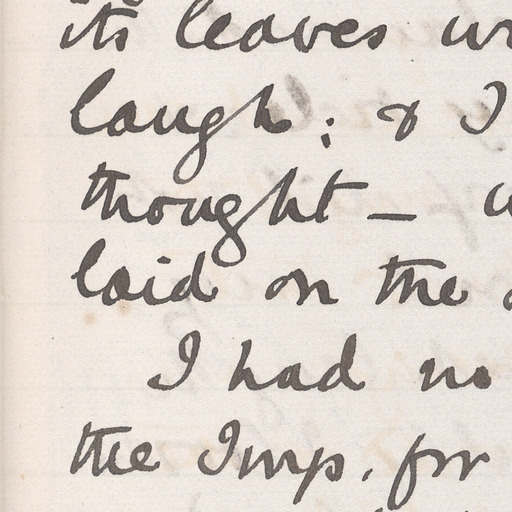 its leaves
laugh; & I
thought —
laid on the
I had no
the Imp. for